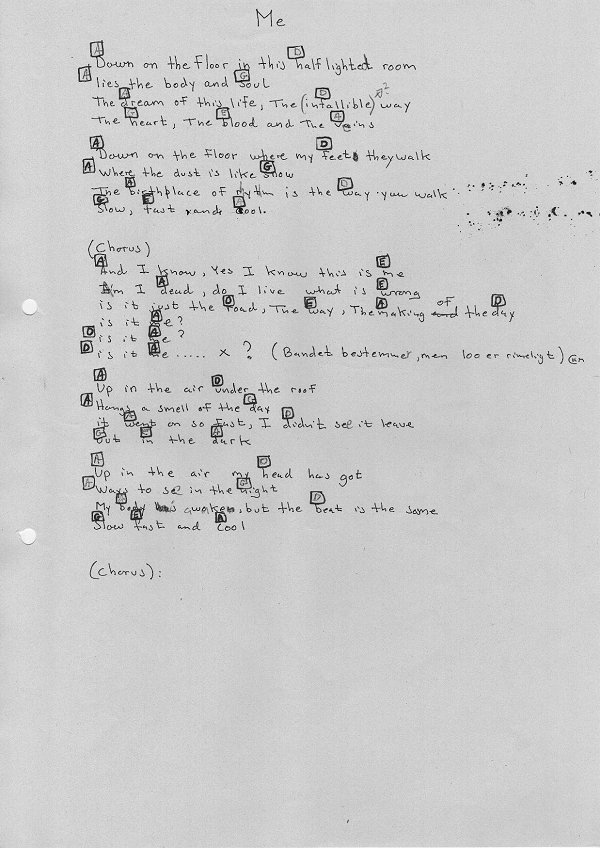 Me
A D
Down on the Floor in this halflighted room
A G
lies the body and soul
A D
The dream of this life, The (infallible) way
G E A
The heart, The blood and The veins
A D
Down on the Floor where my feet they walk
A G
where the dust is like snow
A D
The birthplace of rytm is the way you walk
G E A
Slow, fast and cool.
(Chorus)
A E
And I know, Yes I know this is me
A E
Am I dead, do I live what is wrong
D E A of D
is it just the road, The way, The making and the day
A
is it me?
D A
is it me?
D A
is it me ..... x ? (Bandet bestemmer, men 100 er rimeligt)
A D
Up in the air under the roof
A G
Hangs a smell of the day
A D
it went on so fast, I didn't see it leave
G E A
out in the dark
A D
Up in the air my head has got
A G
ways to see in the night
A D
My body is awake, but the beat is the same
G E A
Slow fast and cool
(Chorus):